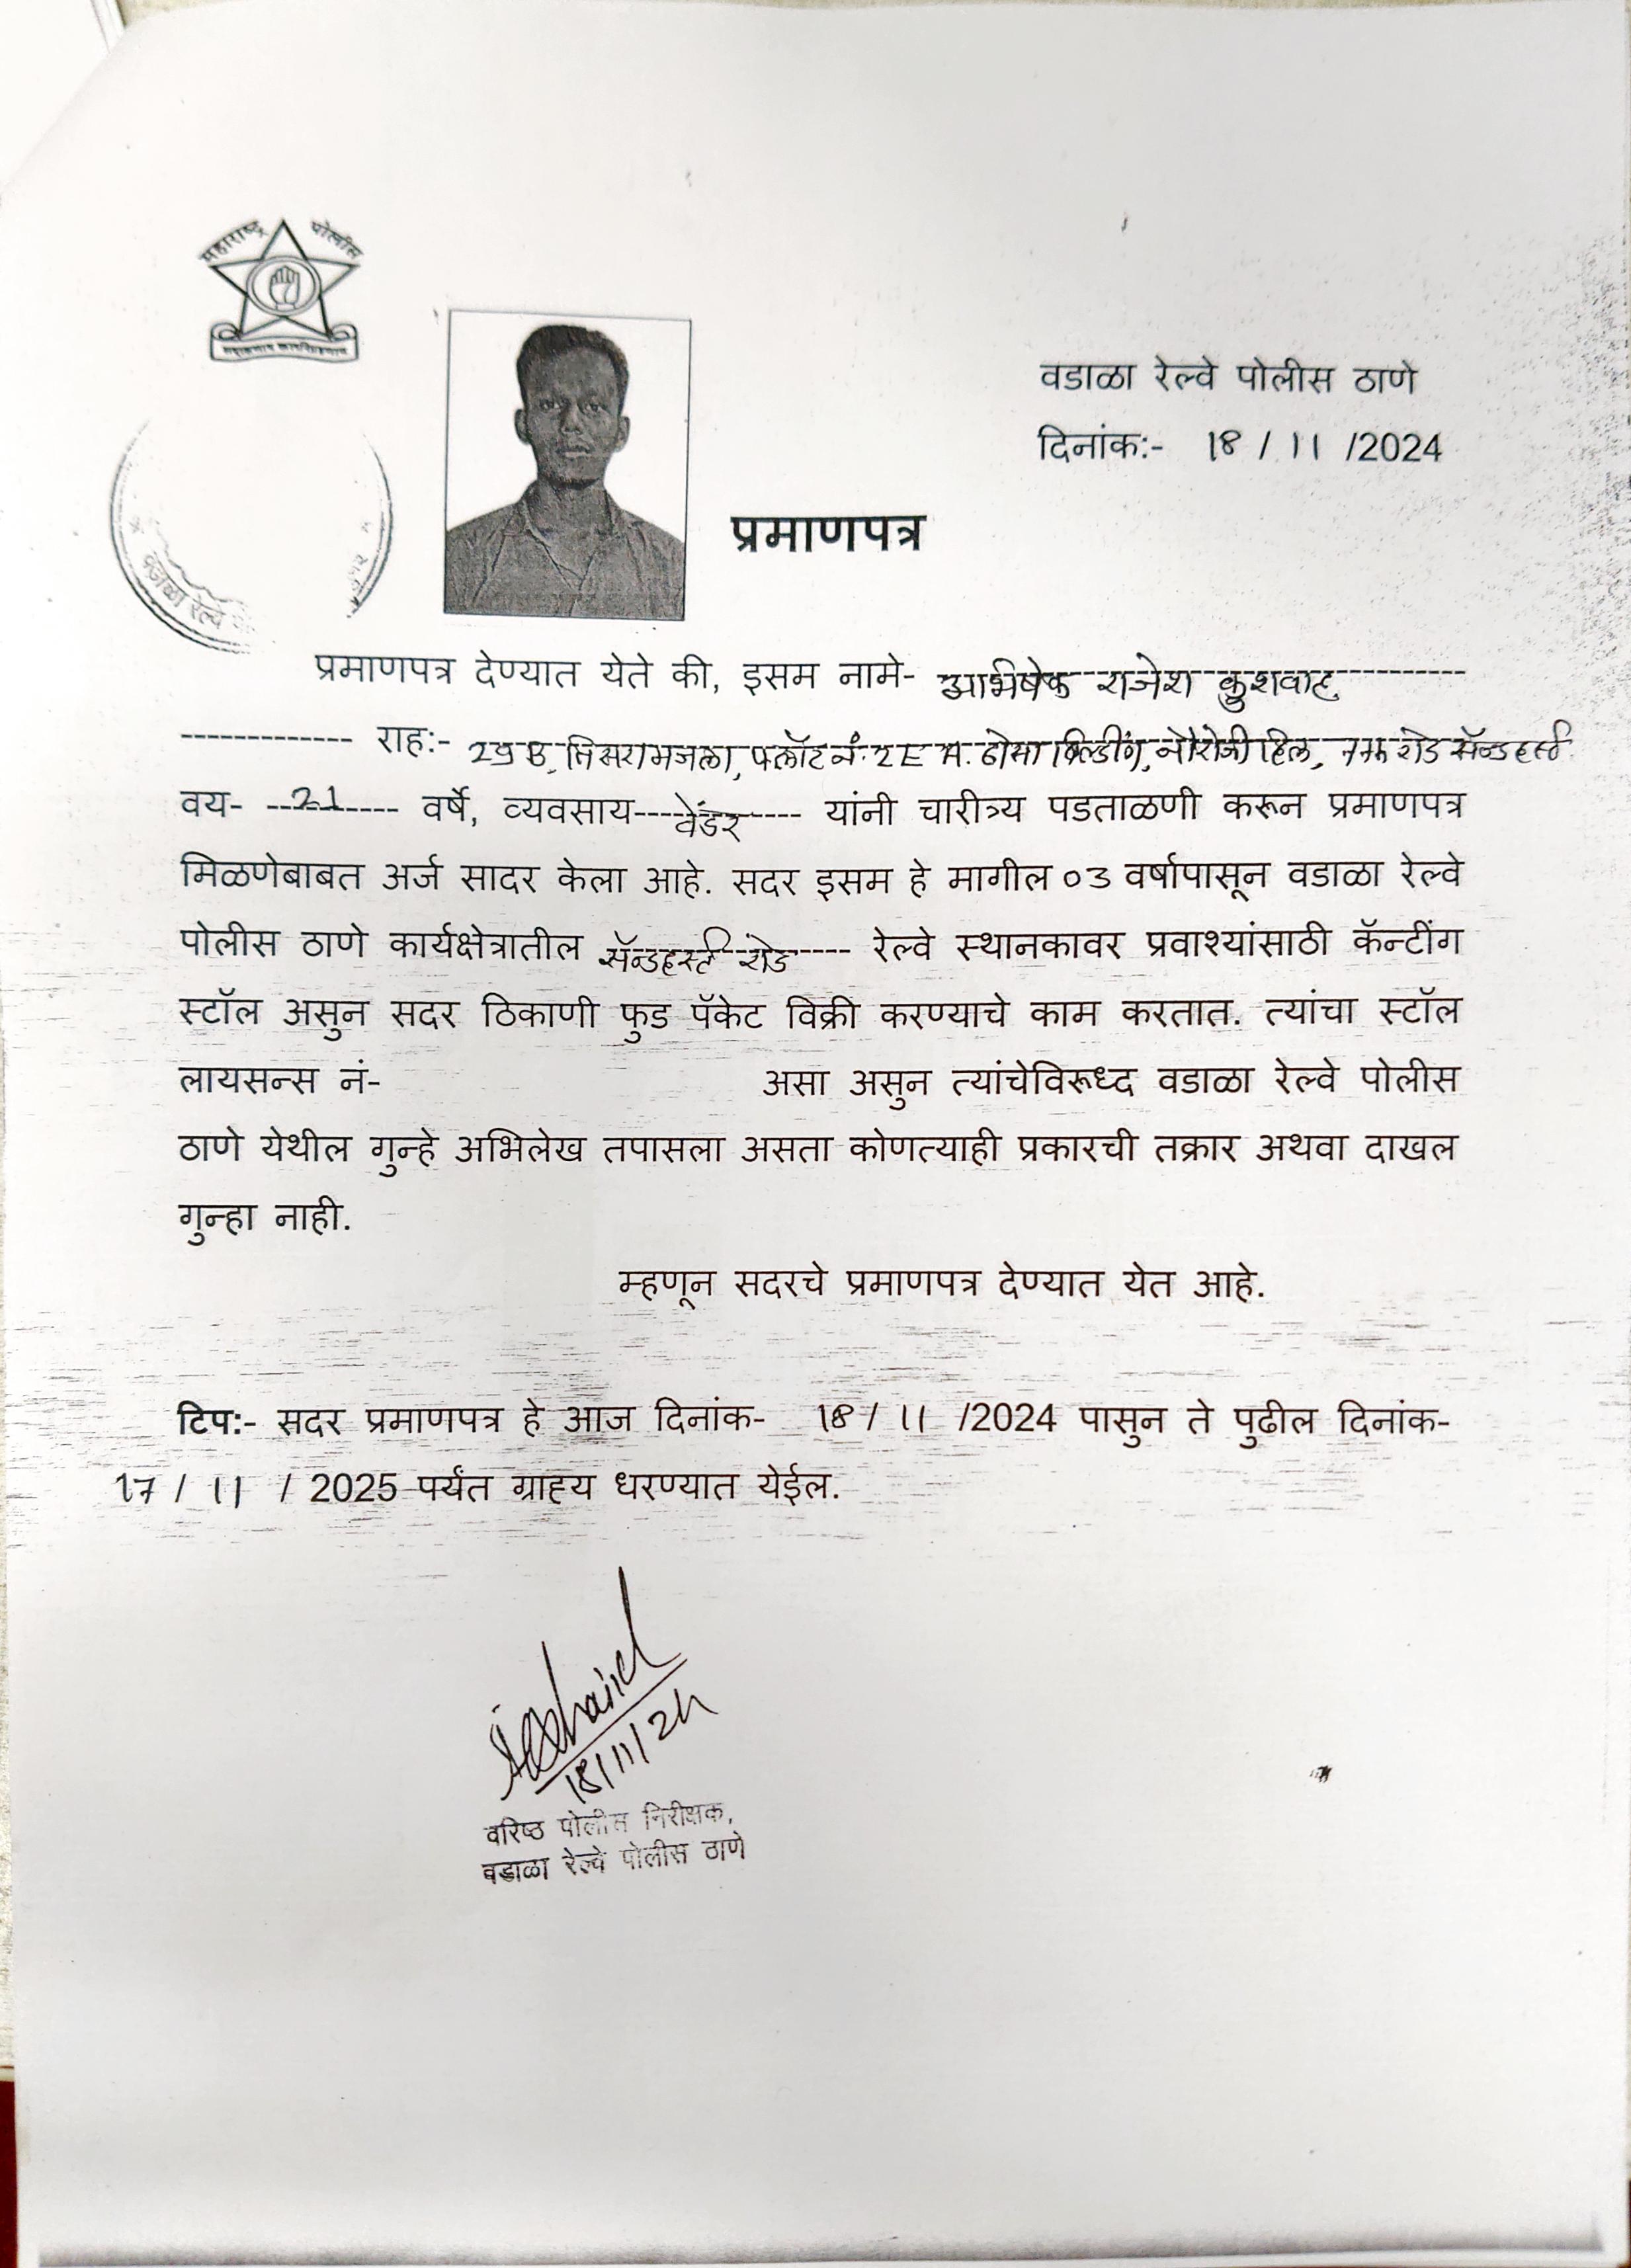 महाराष्ट्र पोलीस
वडाळा रेल्वे पोलीस ठाणे
दिनांक:- 18 / 11 /2024
प्रमाणपत्र
वडाळा रेल्वे
प्रमाणपत्र देण्यात येते की, इसम नामे- अभिषेक राजेश कुशवाह
राह:- तिसरा मजला, प्लॉट नं. बिल्डींग, नौरोजी हिल, रोड सॅन्डहर्स्ट
वय- 21 वर्षे, व्यवसाय- वेंडर यांनी चारीत्र्य पडताळणी करून प्रमाणपत्र
मिळणेबाबत अर्ज सादर केला आहे. सदर इसम हे मागील 03 वर्षापासून वडाळा रेल्वे
पोलीस ठाणे कार्यक्षेत्रातील सॅन्डहर्स्ट रोड रेल्वे स्थानकावर प्रवाश्यांसाठी कॅन्टींग
स्टॉल असुन सदर ठिकाणी फुड पॅकेट विक्री करण्याचे काम करतात. त्यांचा स्टॉल
लायसन्स नं- असा असुन त्यांचेविरूध्द वडाळा रेल्वे पोलीस
ठाणे येथील गुन्हे अभिलेख तपासला असता कोणत्याही प्रकारची तक्रार अथवा दाखल
गुन्हा नाही.
म्हणून सदरचे प्रमाणपत्र देण्यात येत आहे.
टिप:- सदर प्रमाणपत्र हे आज दिनांक- 18 / 11 /2024 पासुन ते पुढील दिनांक-
17 / 11 / 2025 पर्यंत ग्राह्य धरण्यात येईल.
18/11/24
वरिष्ठ पोलीस निरीक्षक,
वडाळा रेल्वे पोलीस ठाणे